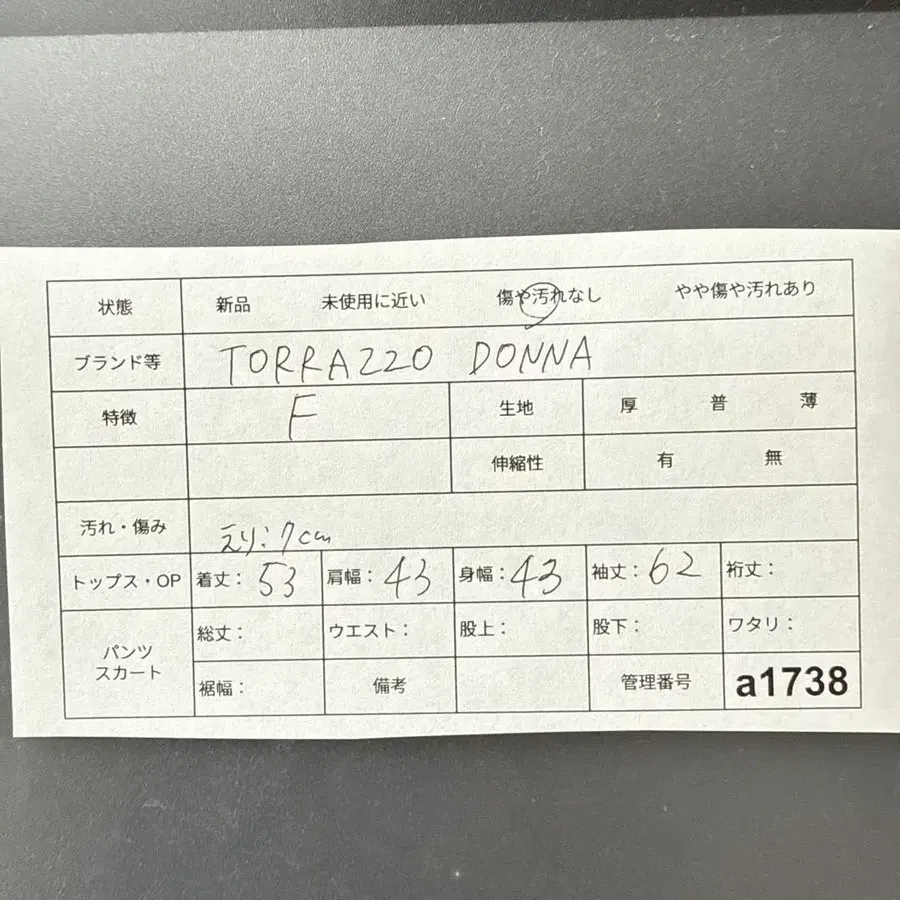 状態 新品 未使用に近い 傷や汚れなし やや傷や汚れあり
ブランド等 TORRAZZO DONNA
特徴 F 生地 厚 普 薄
伸縮性 有 無
汚れ・傷み えり:7cm
トップス・OP 着丈: 53 肩幅: 43 身幅: 43 袖丈: 62 裄丈:
パンツ スカート 総丈: ウエスト: 股上: 股下: ワタリ:
裾幅: 備考 管理番号 a1738